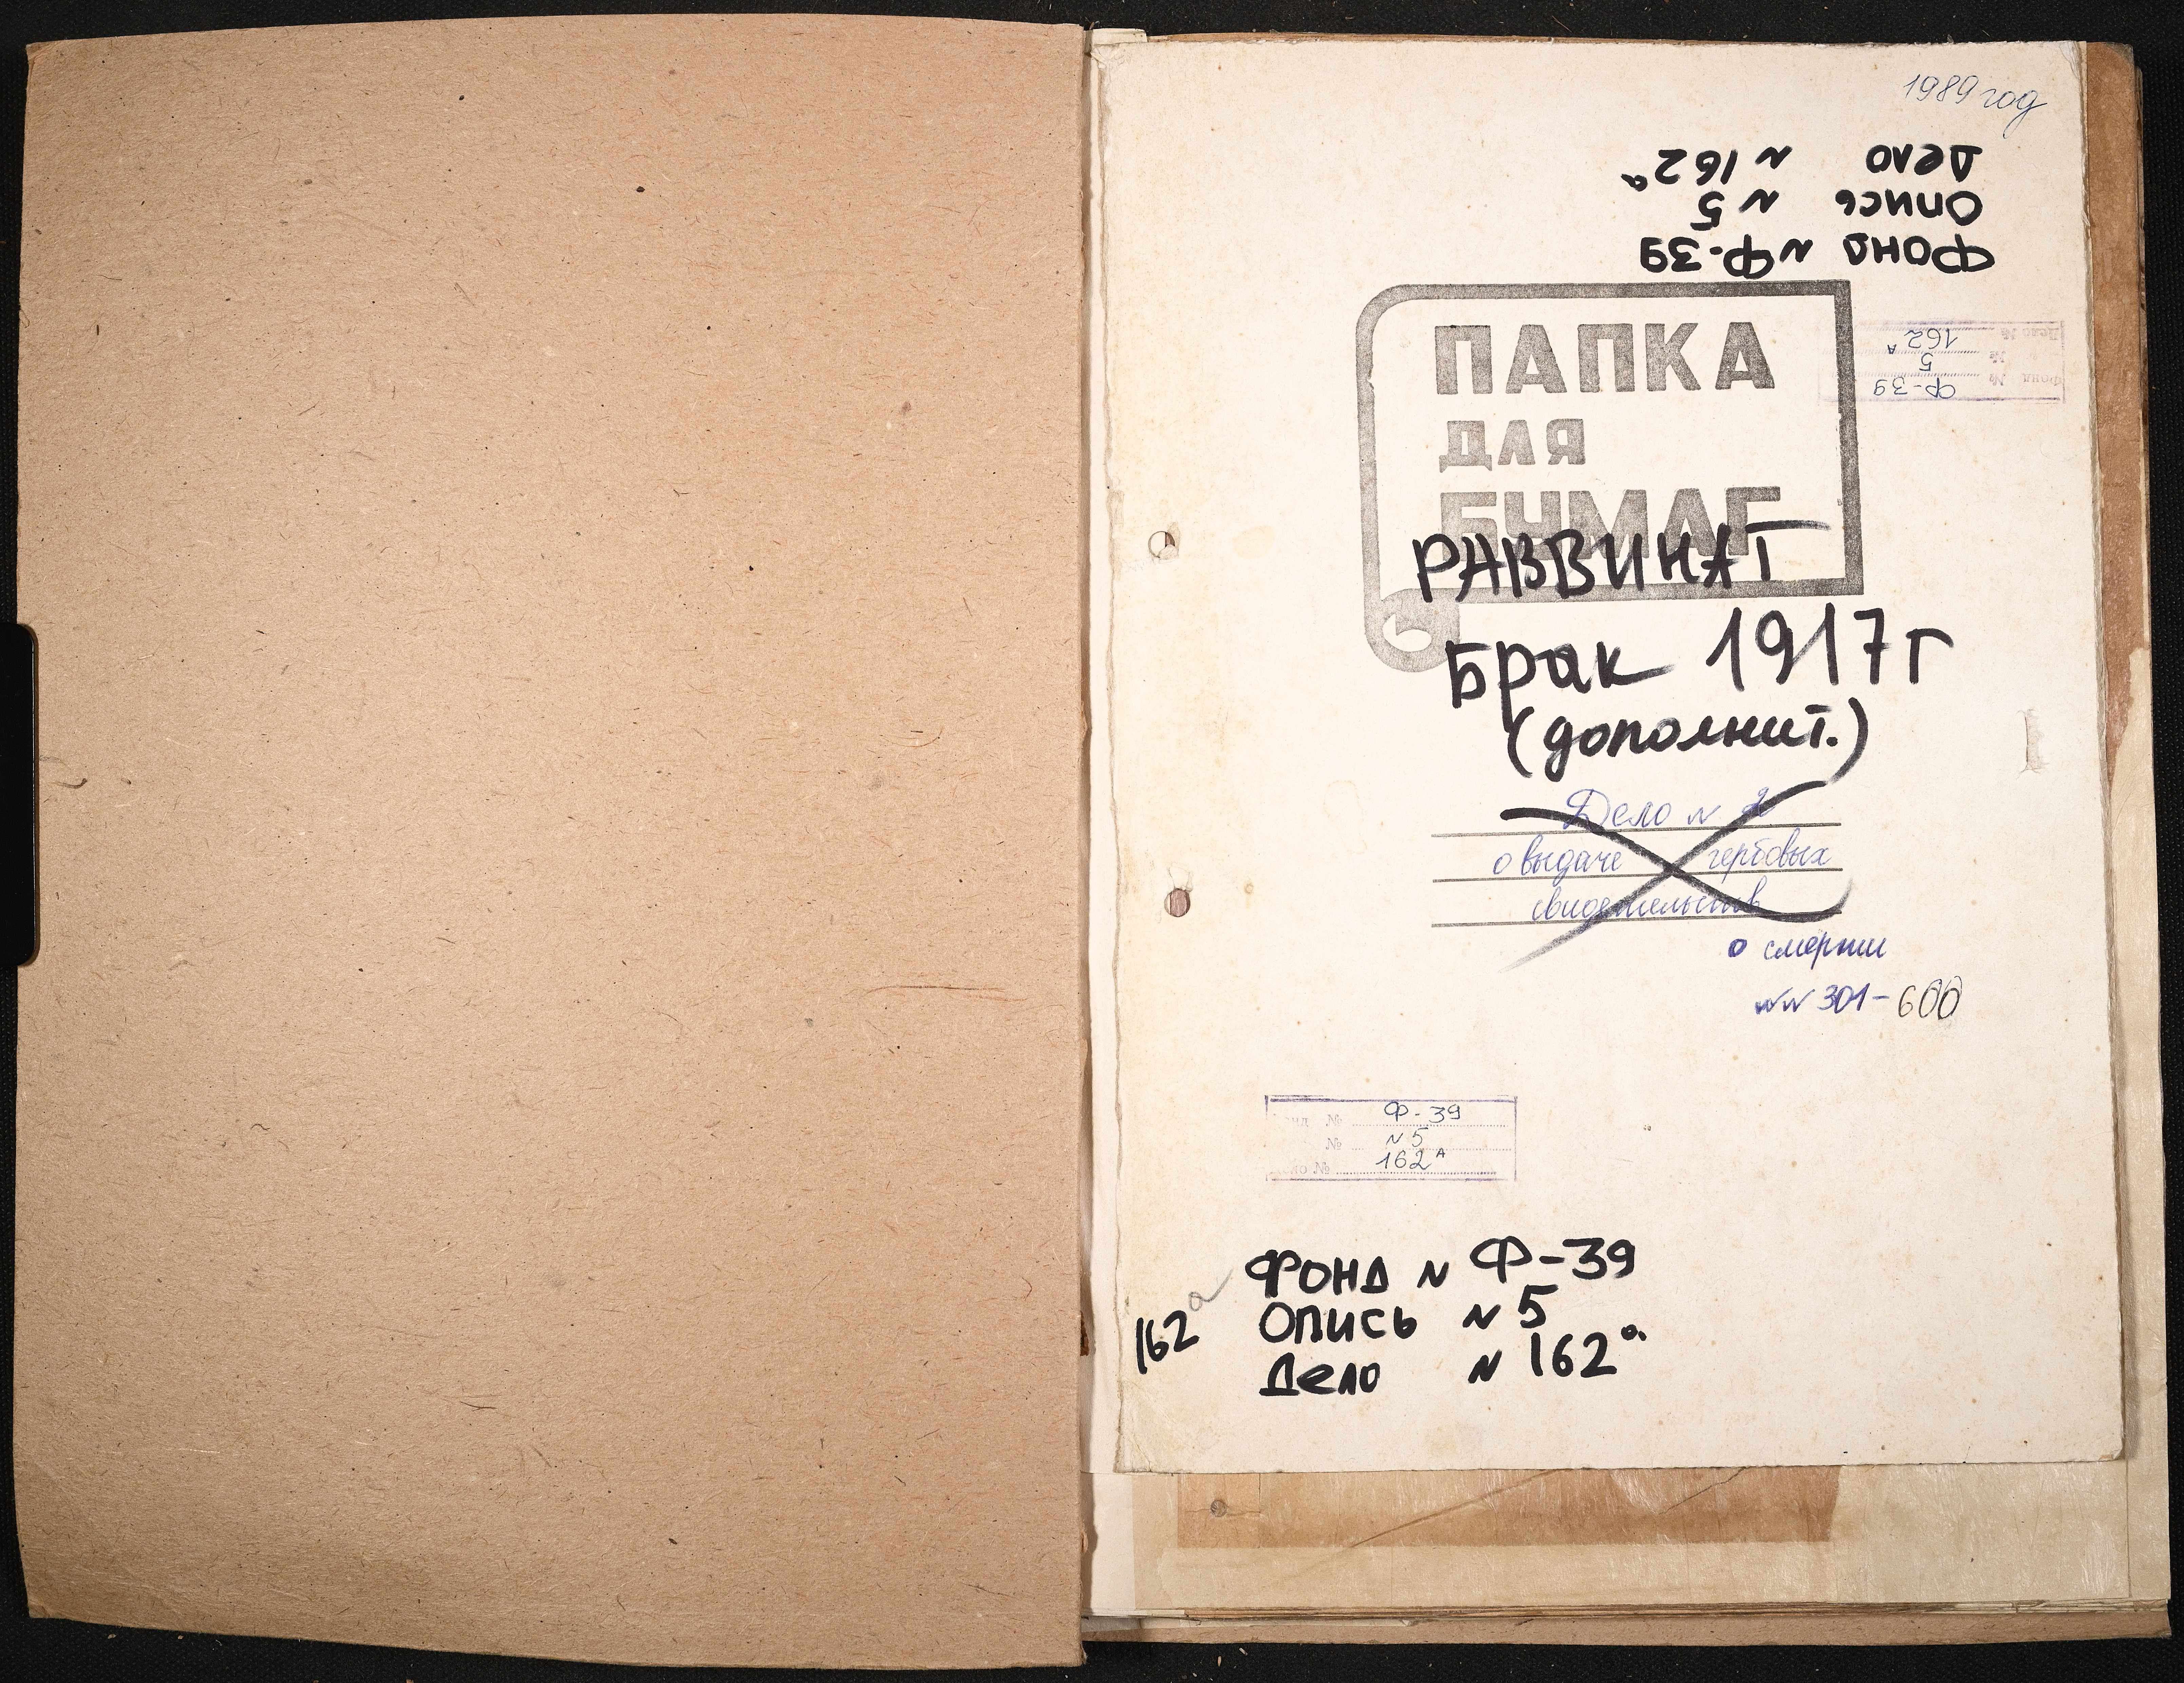 1989 год
Дело № 162а
Опись № 5
Фонд № Ф-39
ПАПКА
ДЛЯ
БУМАГ
Фонд № Ф-39
№ 5
Дело № 162А
РАВВИНАТ
Брак 1917г
(дополнит.)
Дело № 2
о выдаче гербовых
свидетельств
о смерти
№№ 301-600
№ Ф-39
№ №5
№ 162А
Фонд № Ф-39
Опись № 5
Дело № 162а
162а